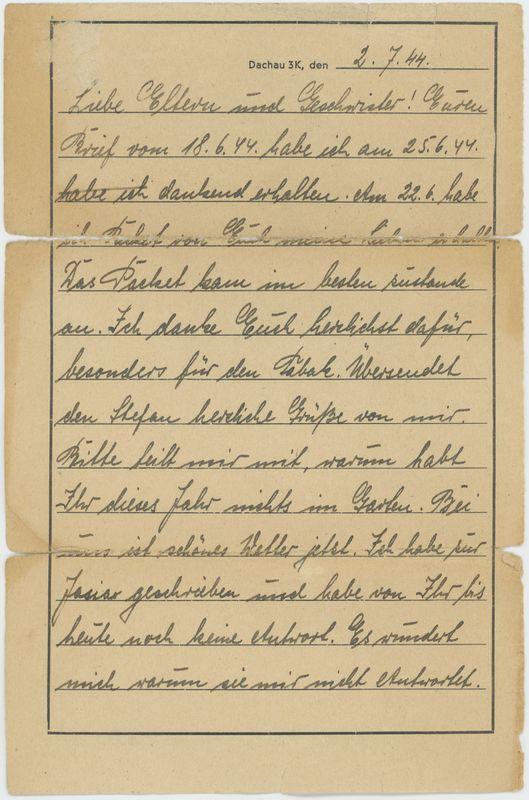 Dachau 3K, den 2.7.44.
Liebe Eltern und Geschwister! Euren
Brief vom 18.6.44. habe ich am 25.6.44.
habe ich dankend erhalten. Am 22.6. habe
ich Packet von Euch meine lieben erhalten.
Das Packet kam im besten zustande
an. Ich danke Euch herzlichst dafür,
besonders für den Tabak. Übersendet
den Stefan herzliche Grüße von mir.
Bitte teilt mir mit, warum habt
Ihr dieses Jahr nichts im Garten. Bei
uns ist schönes Wetter jetzt. Ich habe zur
geschrieben und habe von Ihr bis
heute noch keine Antwort. Es wundert
mich warum sie mir nicht Antwortet.